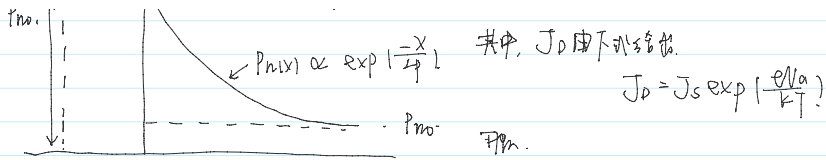 Pno.
Pn(x) ∝ exp(-x/Lp)
Pno.
其中, JD由下式给出.
JD = Js exp(eVa/kT)